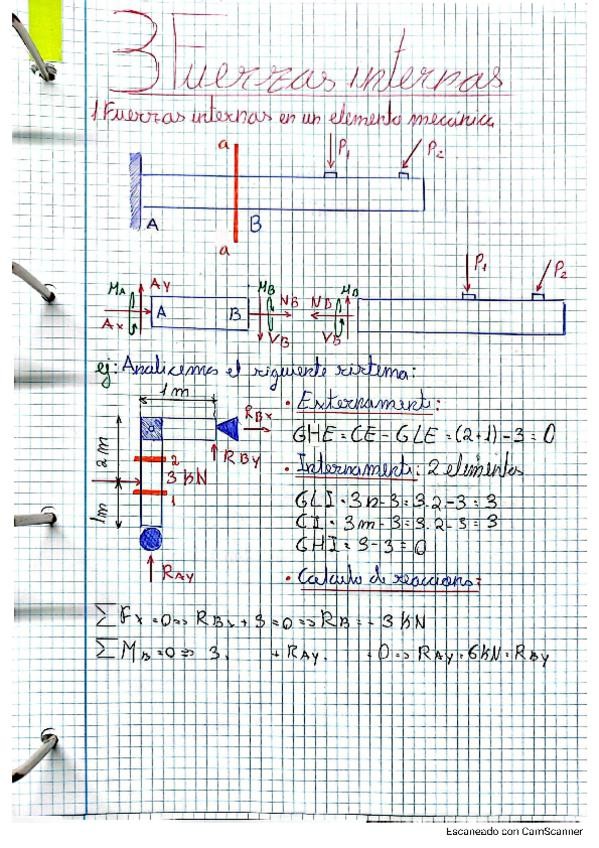 3 Fuerzas internas
1. Fuerzas internas en un elemento mecánico.
a
P1
P2
A
B
a
P1
P2
MA
AY
MB
MB
A
B
NB
NB
AX
VB
VB
ej: Analicemos el siguiente sistema:
1 m
RBX
• Externament:
GHE = CE - GLE = (2+1) - 3 = 0
RBY
• Internament: 2 elementos
2 m
2
3 kN
1
1m
GLI = 3n-3 = 3·2-3 = 3
CI = 3m-3 = 3·2-3 = 3
GHI = 3-3 = 0
RAY
• Calculo de reaccions:
∑Fx=0 => RBx + 3 = 0 => RB = -3 kN
∑MB=0 => 3. + RAY. = 0 => RAY = 6kN = RBY
Escaneado con CamScanner